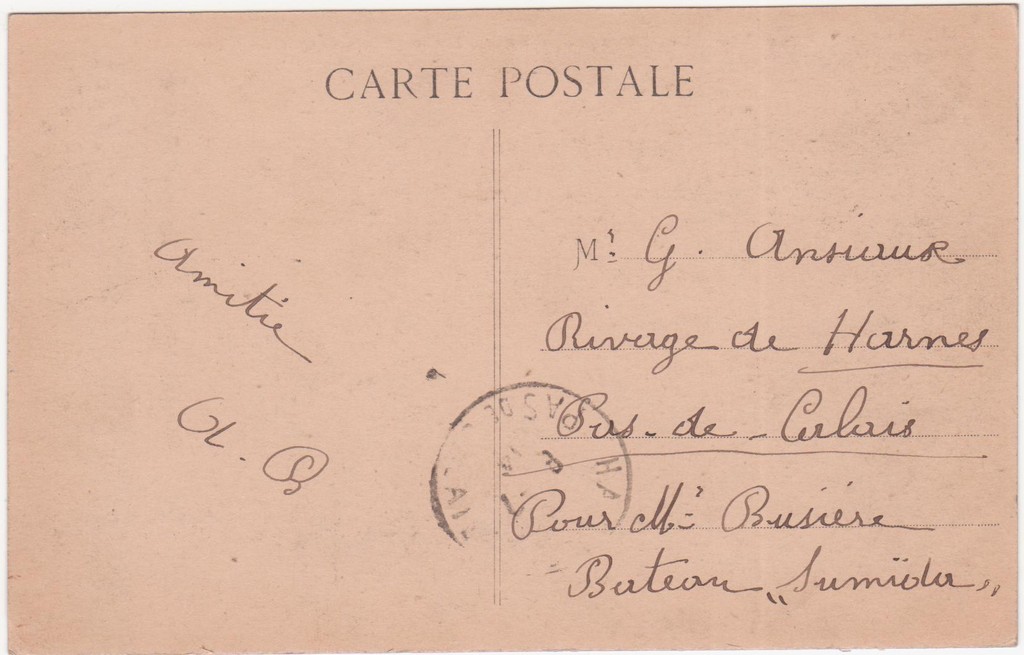 CARTE POSTALE
Amitié
A. B
Mr. G. Ansiaux
Rivage de Harnes
Pas-de-Calais
Pour Mr Busiére
Bateau „Sumida„
PAS DE
HA